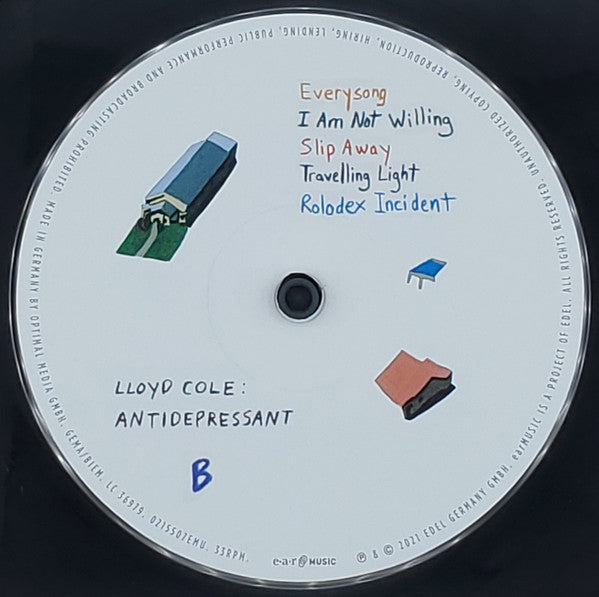 Everysong
I Am Not Willing
Slip Away
Travelling Light
Rolodex Incident
LLOYD COLE:
ANTIDEPRESSANT
B
e·a·r MUSIC
℗ & © 2021 EDEL GERMANY GMBH. earMUSIC IS A PROJECT OF EDEL. ALL RIGHTS RESERVED. UNAUTHORIZED COPYING, REPRODUCTION, HIRING, LENDING, PUBLIC PERFORMANCE AND BROADCASTING PROHIBITED. MADE IN GERMANY BY OPTIMAL MEDIA GMBH. GEMA/BIEM. LC 36979. 0215507EMU. 33RPM.